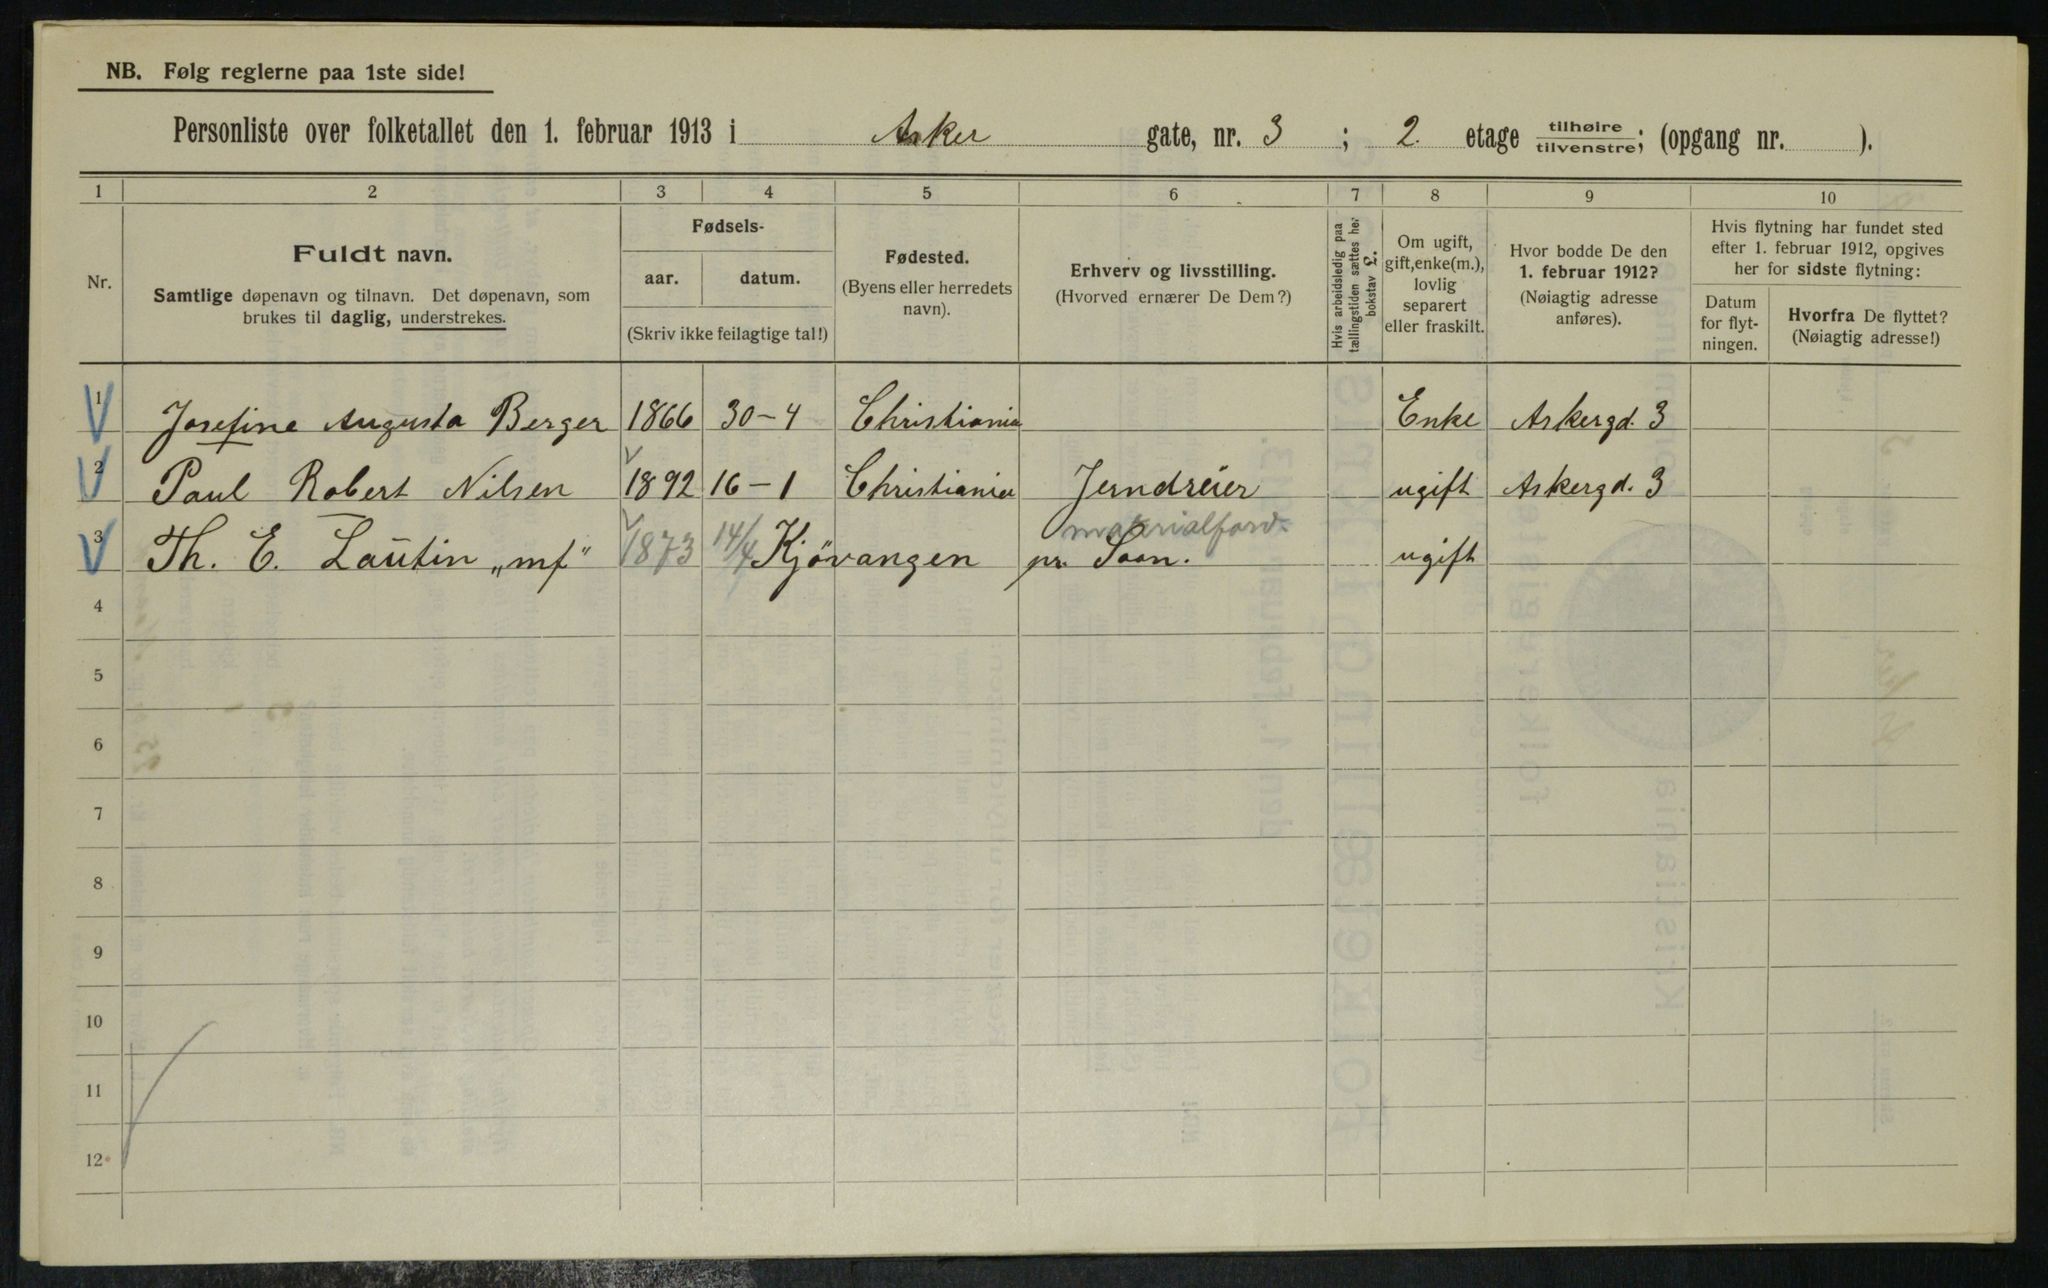 NB. Følg reglerne paa 1ste side!
Personliste over folketallet den 1. februar 1913 i Asker gate, nr. 3 ; 2. etage tilhøire tilvenstre; (opgang nr. ).
1 2 3 4 5 6 7 8 9 10
Nr.
Fuldt navn.
Samtlige døpenavn og tilnavn. Det døpenavn, som
brukes til daglig, understrekes.
Fødsels-
aar. datum.
(Skriv ikke feilagtige tal!)
Fødested.
(Byens eller herredets
navn).
Erhverv og livsstilling.
(Hvorved ernærer De Dem?)
Hvis arbeidsledig paa
tællingstiden sættes her
bokstav L.
Om ugift,
gift, enke(m.),
lovlig
separert
eller fraskilt.
Hvor bodde De den
1. februar 1912?
(Nøiagtig adresse
anføres).
Hvis flytning har fundet sted
efter 1. februar 1912, opgives
her for sidste flytning:
Datum
for flyt-
ningen.
Hvorfra De flyttet?
(Nøiagtig adresse!)
1 Josefine Augusta Berger 1866 30-4 Christiania Enke Askergd. 3
2 Paul Robert Nilsen 1892 16-1 Christiania Jerndreier ugift Askergd. 3
materialforv.
3 Th. E. Lautin „mf“ 1873 14/4 Kjövangen pr. Soon. ugift
4
5
6
7
8
9
10
11
12